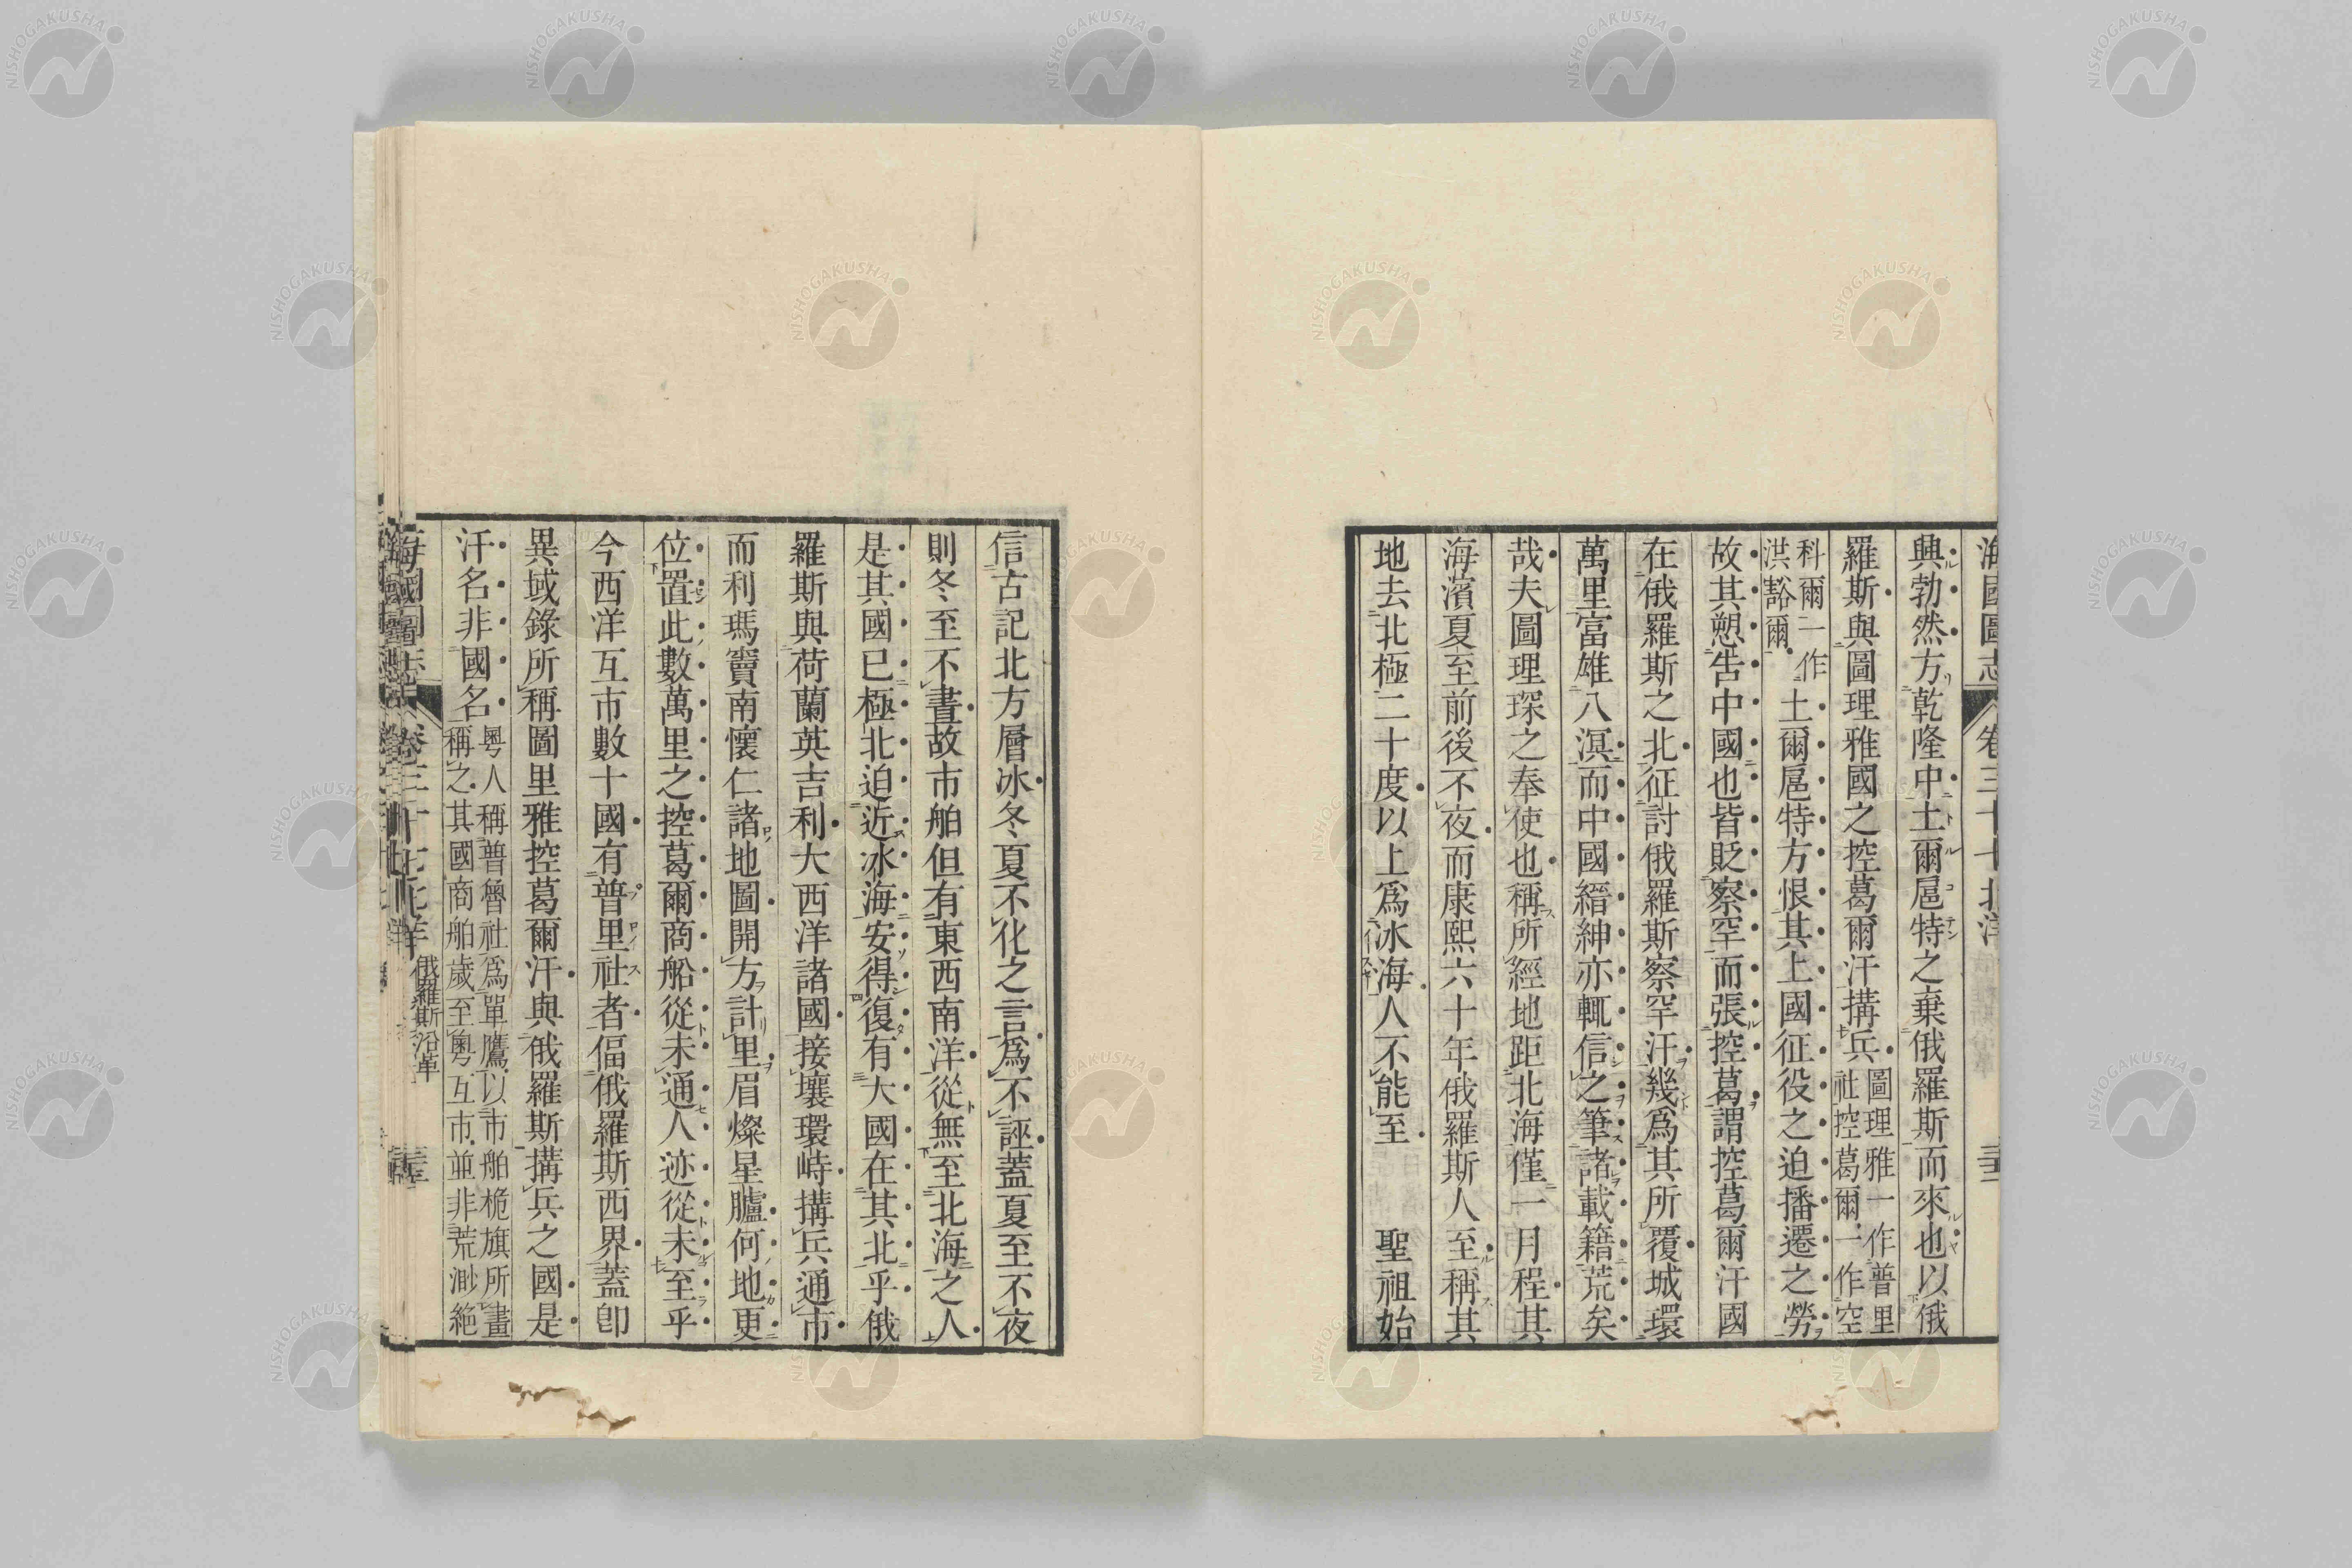 海國圖志 卷三十七 北洋
興勃然方乾隆中土爾扈特之棄俄羅斯而來也以俄
羅斯與圖理雅國之控葛爾汗搆兵圖理雅一作普里社控葛爾一作空
科爾一作洪豁爾土爾扈特方恨其上國征役之迫播遷之勞
故其愬吿中國也皆貶察罕而張控葛謂控葛爾汗國
在俄羅斯之北征討俄羅斯察罕汗幾爲其所覆城環
萬里富雄八溟而中國縉紳亦輒信之筆諸載籍荒矣
哉夫圖理琛之奉使也稱所經地距北海僅一月程其
海濱夏至前後不夜而康熙六十年俄羅斯人至稱其
地去北極二十度以上爲冰海人不能至 聖祖始
信古記北方層冰冬夏不化之言爲不誣蓋夏至不夜
則冬至不晝故市舶但有東西南洋從無至北海之人
是其國已極北迫近冰海安得復有大國在其北乎俄
羅斯與荷蘭英吉利大西洋諸國接壤環峙搆兵通市
而利瑪竇南懷仁諸地圖開方計里眉燦星臚何地更
位置此數萬里之控葛爾商船從未通人迹從未至乎
今西洋互市數十國有普里社者偪俄羅斯西界蓋卽
異域錄所稱圖里雅控葛爾汗與俄羅斯搆兵之國是
汗名非國名粵人稱普魯社爲單鷹以市舶桅旗所畫稱之其國商舶歲至粵互市並非荒渺絕
海國圖志 卷三十七 北洋 俄羅斯沿革